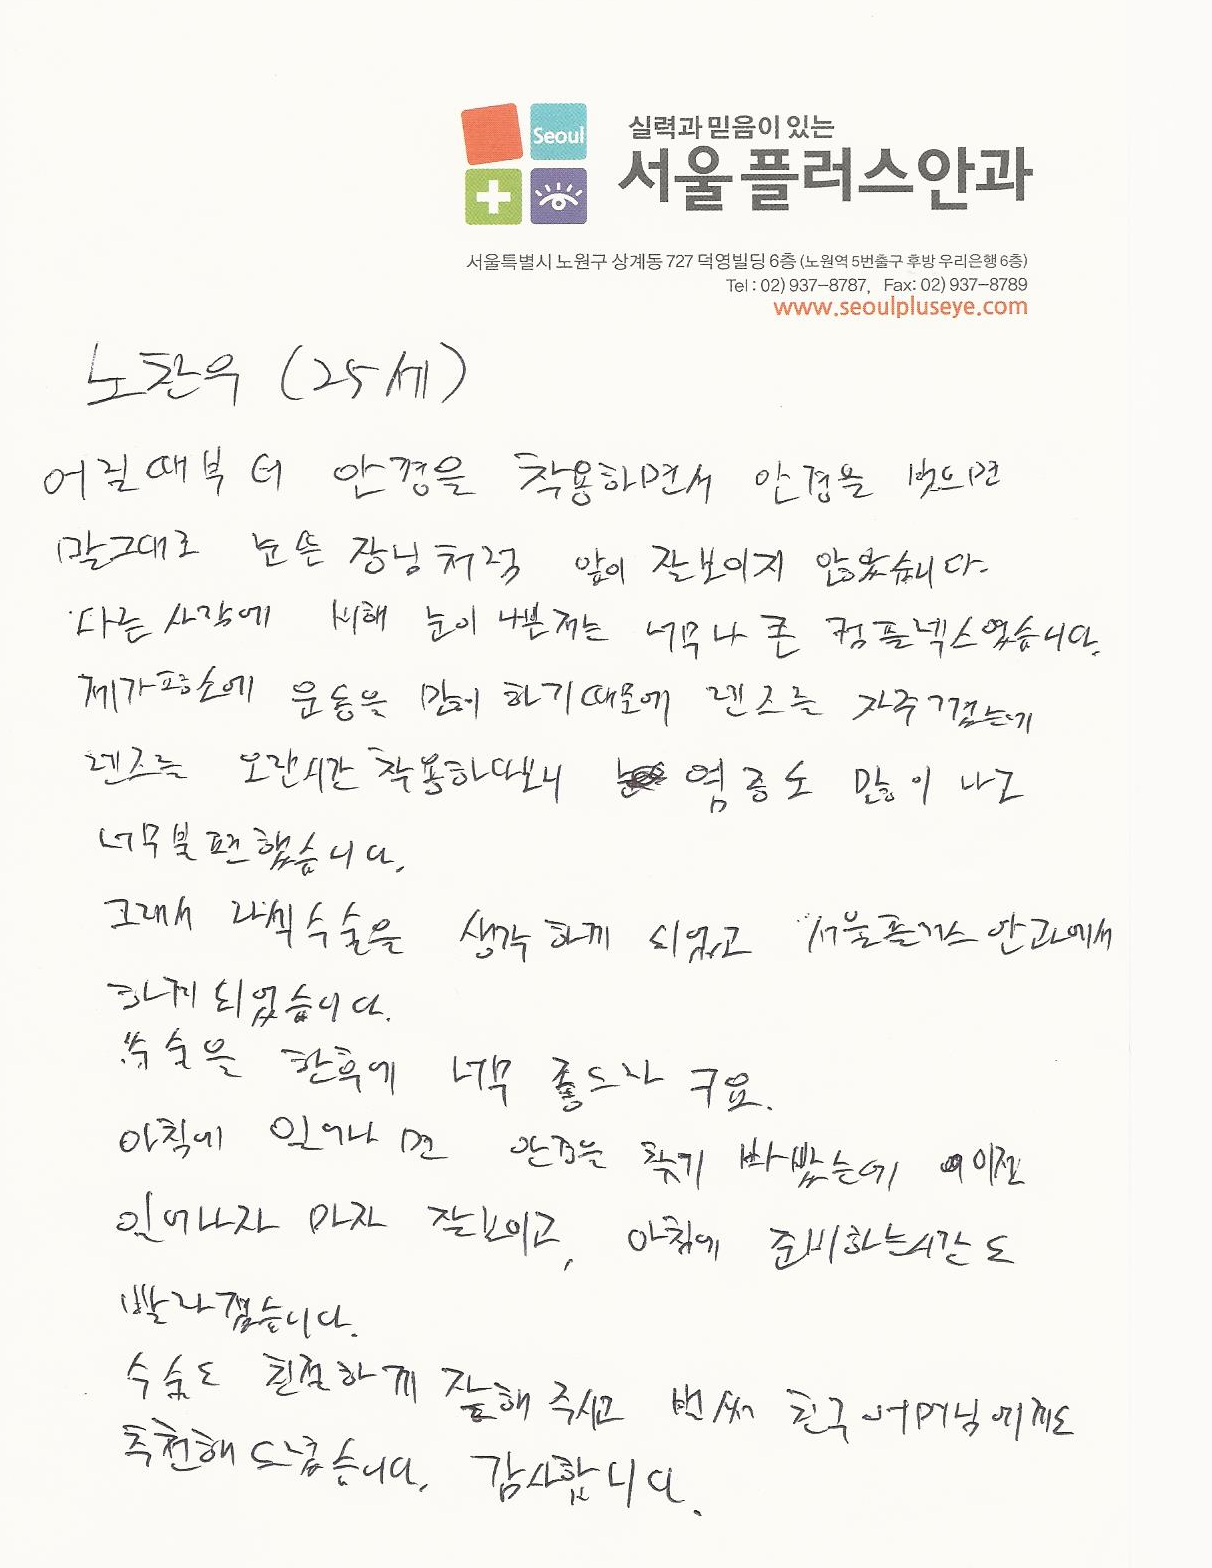 Seoul
실력과 믿음이 있는
서울플러스안과
서울특별시 노원구 상계동 727 덕영빌딩 6층 (노원역 5번출구 후방 우리은행 6층)
Tel : 02) 937-8787, Fax: 02) 937-8789
www.seoulpluseye.com
노찬우 (25세)
어릴때부터 안경을 착용하면서 안경을 벗으면
말그대로 눈뜬 장님처럼 앞이 잘보이지 않았습니다.
다른 사람에 비해 눈이 나쁜저는 너무나 큰 컴플렉스였습니다.
제가평소에 운동을 많이 하기때문에 렌즈를 자주꼈는데
렌즈를 오랜시간 착용하다보니 염증도 많이 나고
너무불편했습니다.
그래서 라식수술을 생각하게 되었고 서울플러스안과에서
하게되었습니다.
수술을 한후에 너무 좋드라구요.
아침에 일어나면 안경을 찾기 바빴는데 이젠
일어나자 마자 잘보이고, 아침에 준비하는시간도
빨라졌습니다.
수술도 친절하게 잘해주시고 벌써 친구 어머님에게도
추천해드렸습니다. 감사합니다.